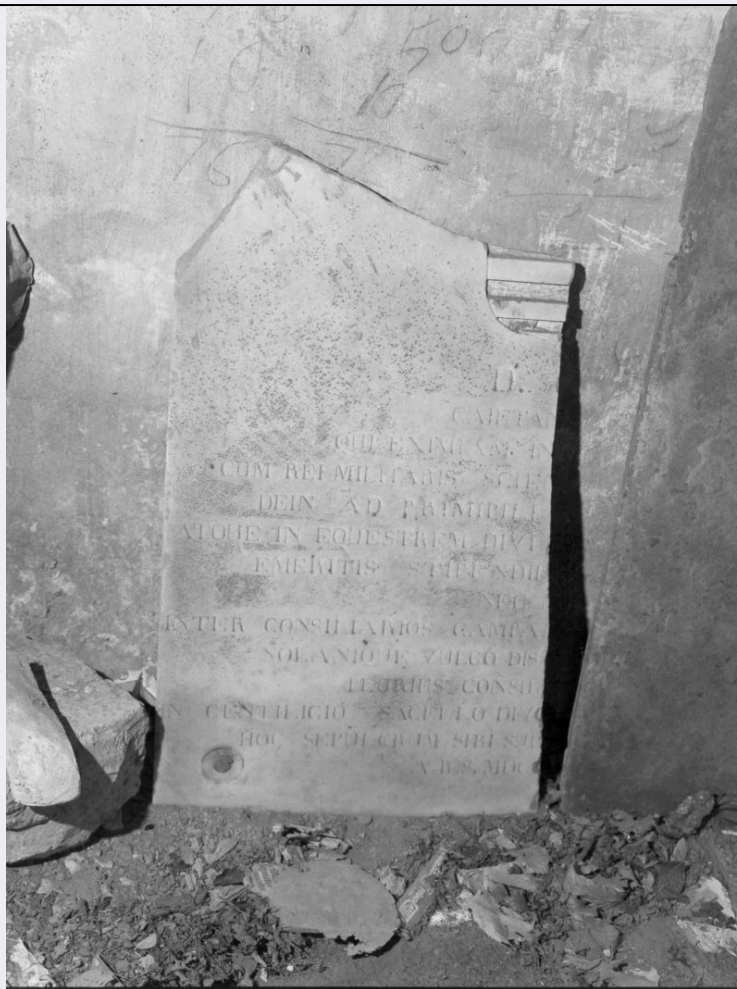 500
10
D.
CAIETA
QUI EXIMIAM IN
CUM REI MILITARIS SCIE
DEIN AD PRIMIPILI
ATQUE IN EQUESTREM DIVI
EMERITIS STIPENDII
NEC
INTER CONSILIARIOS CAMPA
NOLANIQUE VULGO DIS
PLURIES CONSIL
IN GENTILICIO SACELLO DIVO
HOC SEPULCRUM SIBI SUI
A.R.S. MDCC